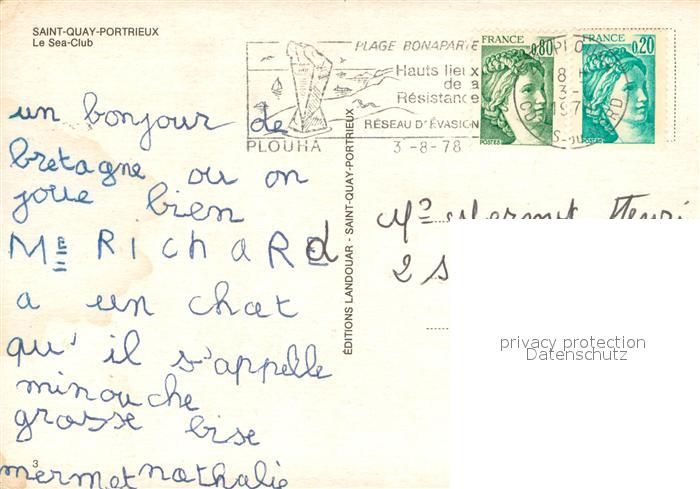 SAINT-QUAY-PORTRIEUX
Le Sea-Club
PLAGE BONAPARTE
Hauts lieux
de la
Résistance
RÉSEAU D'ÉVASION
PLOUHA
3-8-78
FRANCE
0,80
POSTES
FRANCE
0,20
POSTES
un bonjour de
bretagne ou on
joue bien
ME RIChARd
a un chat
qu' il s'appelle
minouche
grosse bise
mermet nathalie
3
ÉDITIONS LANDOUAR - SAINT-QUAY-PORTRIEUX
Mermet Henri
2
privacy protection
Datenschutz